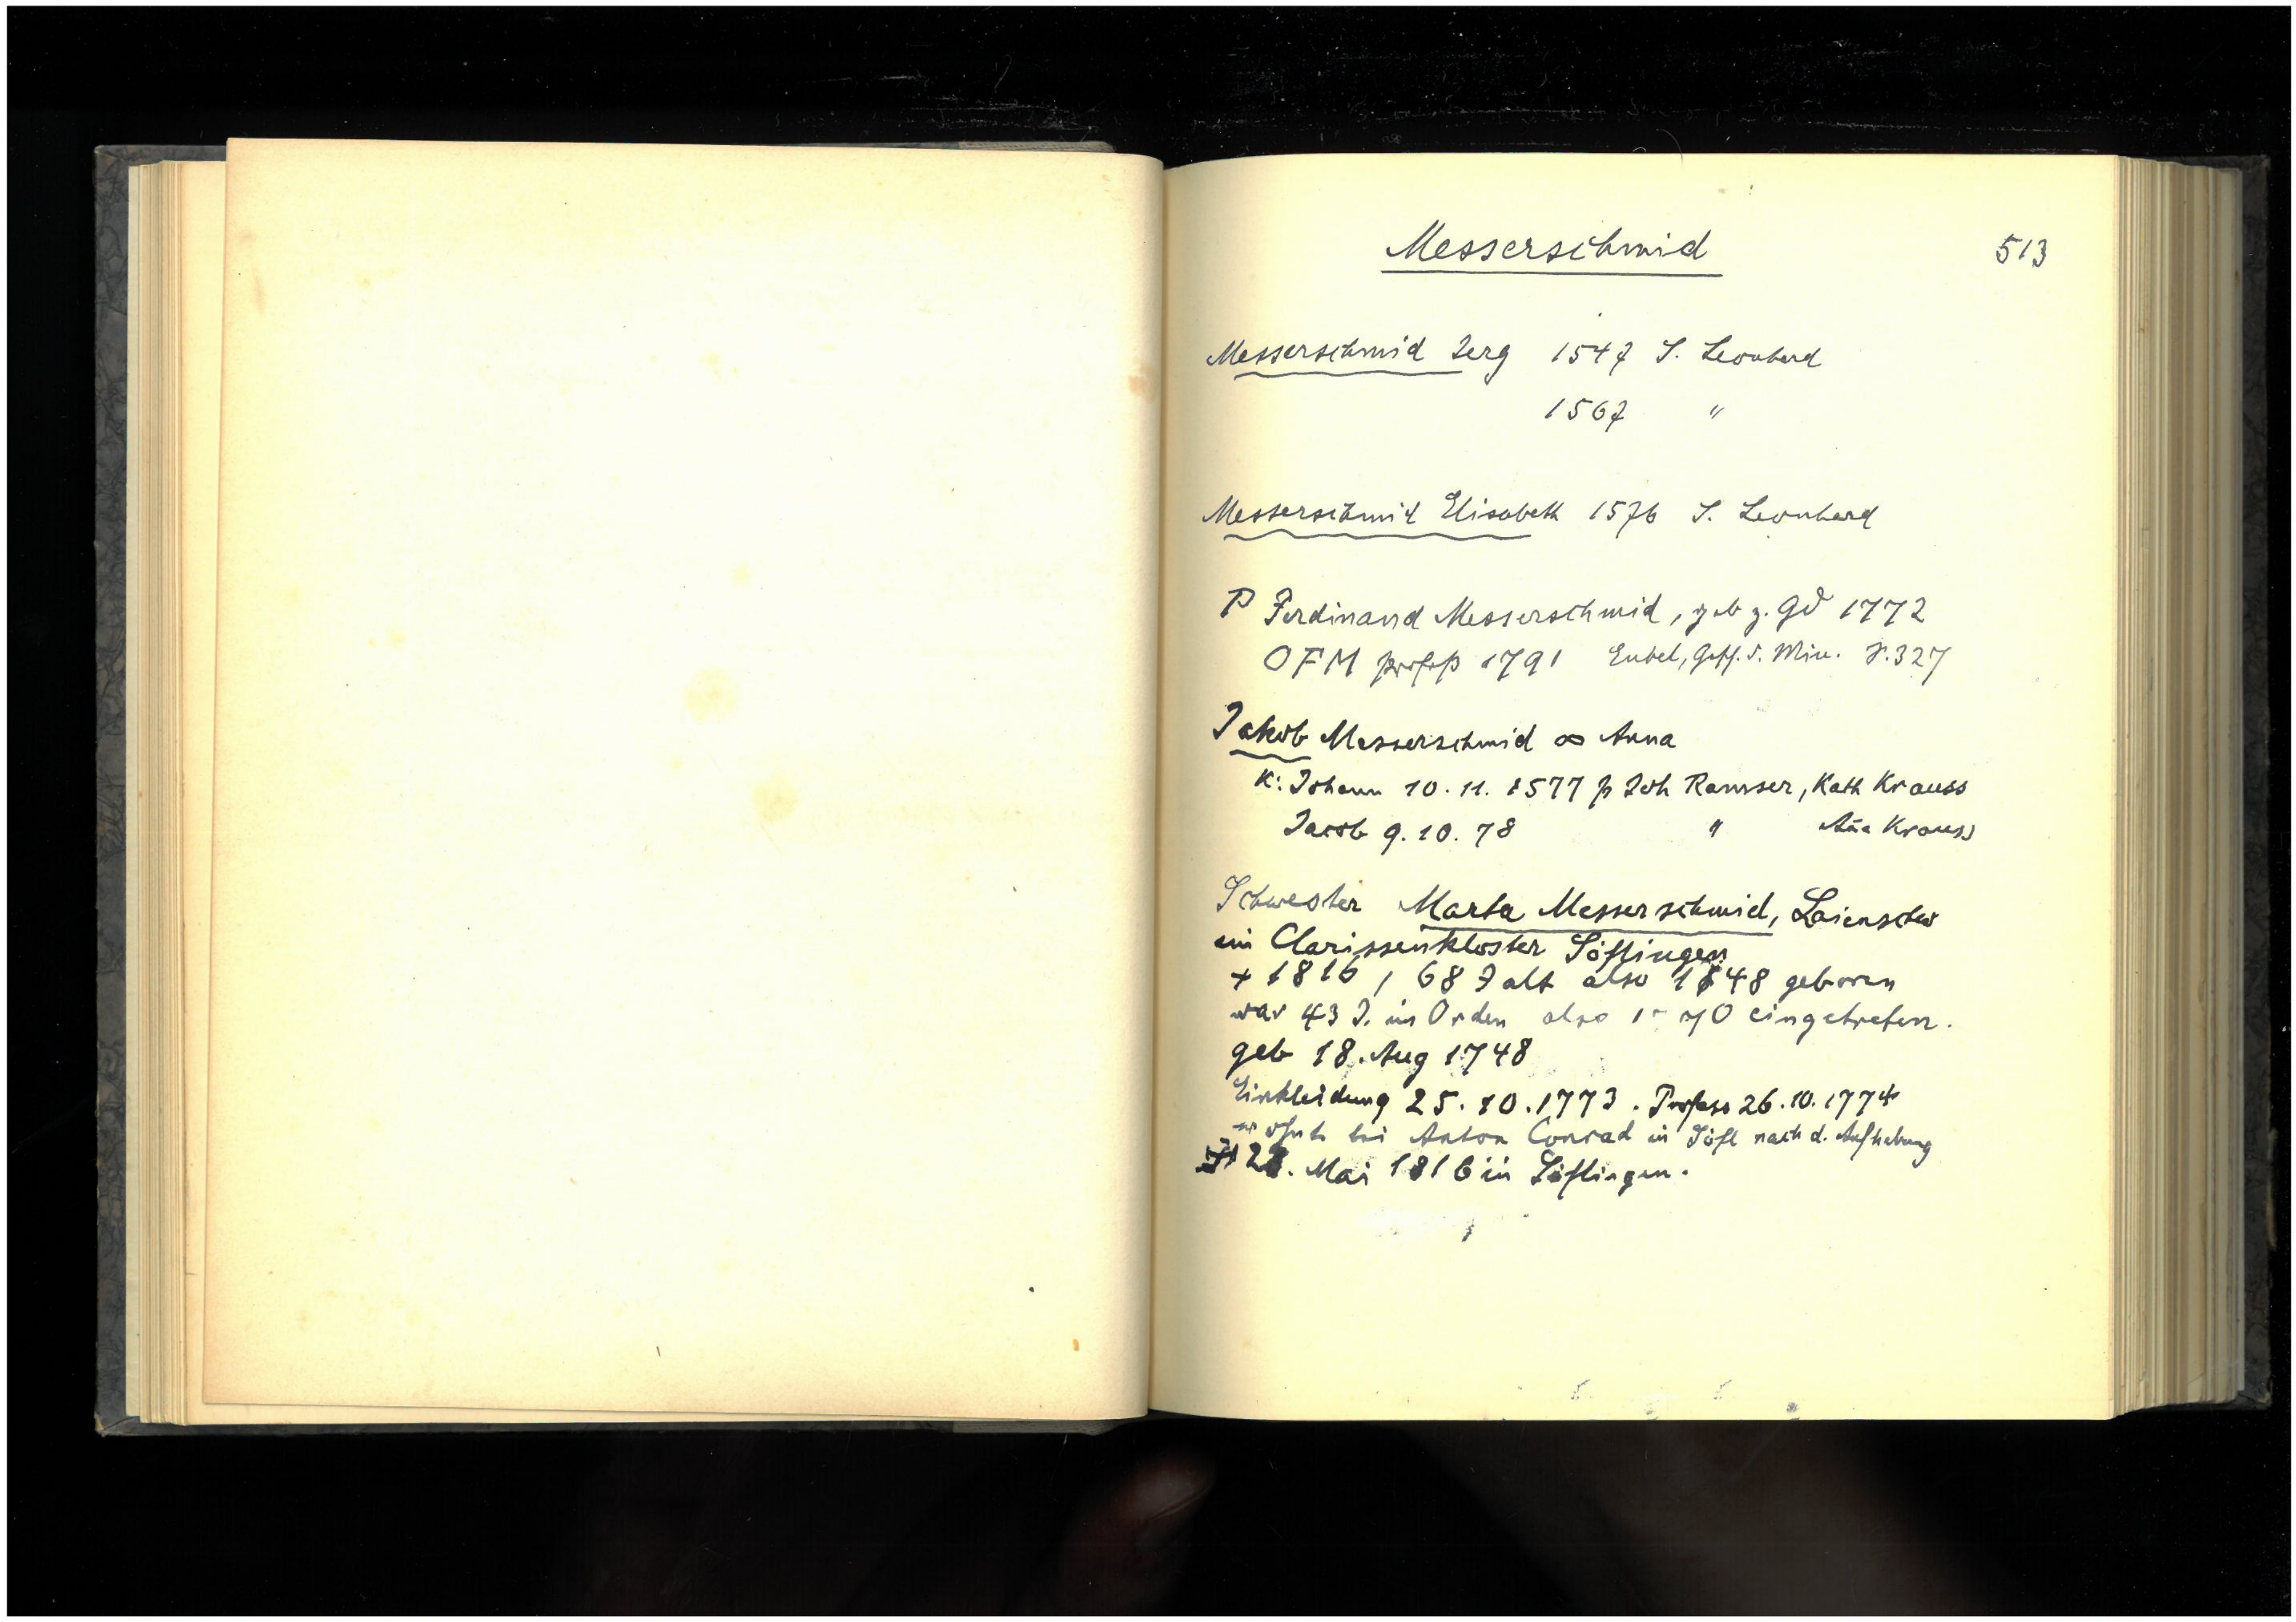 Messerschmid
513
Messerschmid Jerg 1547 S. Leonhard
1567 "
Messerschmid Elisabeth 1576 S. Leonhard
P Ferdinand Messerschmid, geb z. Gd 1772
OFM profeß 1791 Eubel, Gesch. d. Min. S. 327
Jakob Messerschmid ∞ Anna
K: Johann 10. 11. 1577 p Joh Ramser, Kath Krauss
Jacob 9. 10. 78 " Añа Krauss
Schwester Marta Messerschmid, Laienschw
im Clarissenkloster Söflingen
+ 1816, 68 J alt also 1748 geboren
war 43 J. im Orden also eingetreten.
geb 18. Aug 1748
Einkleidung 25. 10. 1773. Profess 26. 10. 1774
wohnte bei Anton Conrad in Söfl nach d. Aufhebung
Mai 1816 in Söflingen.